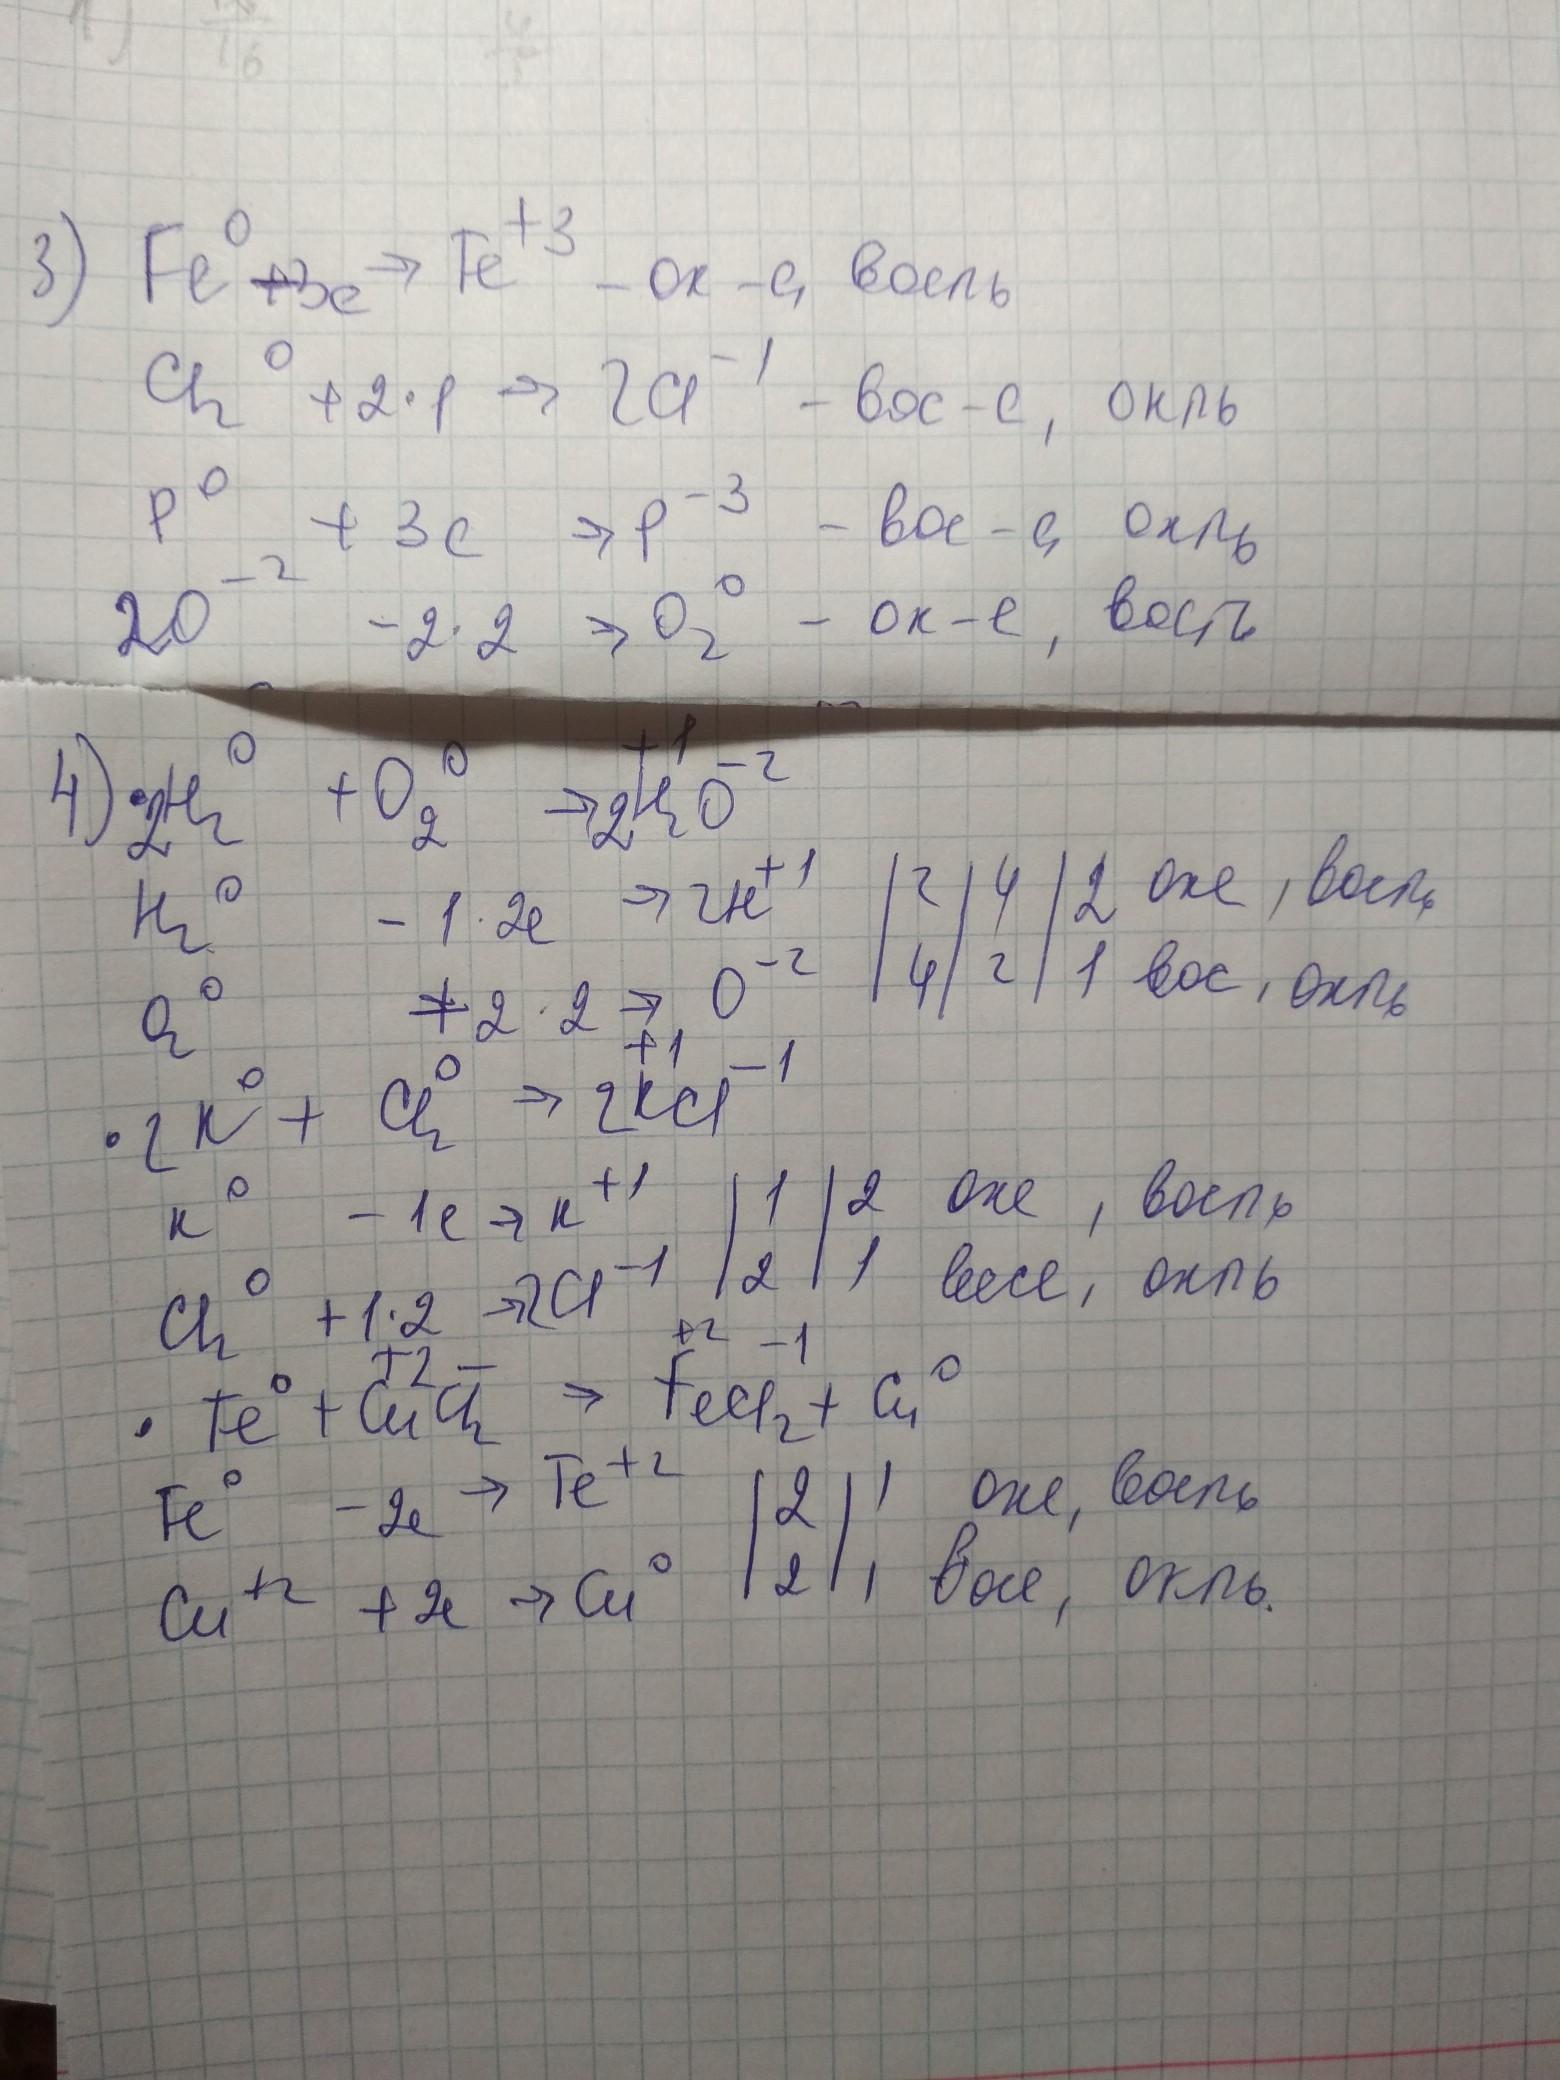 3) Fe⁰ -3e → Fe⁺³ - ок-е, восль
Cl₂⁰ +2·1 → 2Cl⁻¹ - вос-е, окль
P⁰ + 3e → P⁻³ - вос-е, окль
2O⁻² -2·2 → O₂⁰ - ок-е, восль
4) 2H₂⁰ + O₂⁰ → 2H₂⁺¹O⁻²
H₂⁰ - 1·2e → 2H⁺¹ | 2 | 4 | 2 оке, восль
O₂⁰ +2·2 → O⁻² | 4 | 2 | 1 вос, окль
·2K⁰ + Cl₂⁰ → 2K⁺¹Cl⁻¹
K⁰ - 1e → K⁺¹ | 1 | 2 оке, восль
Cl₂⁰ +1·2 → 2Cl⁻¹ | 2 | 1 восе, окль
· Fe⁰ + Cu⁺²Cl₂⁻ → Fe⁺²Cl₂⁻¹ + Cu⁰
Fe⁰ - 2e → Fe⁺² | 2 | 1 оке, восль
Cu⁺² + 2e → Cu⁰ | 2 | 1 вое, окль.